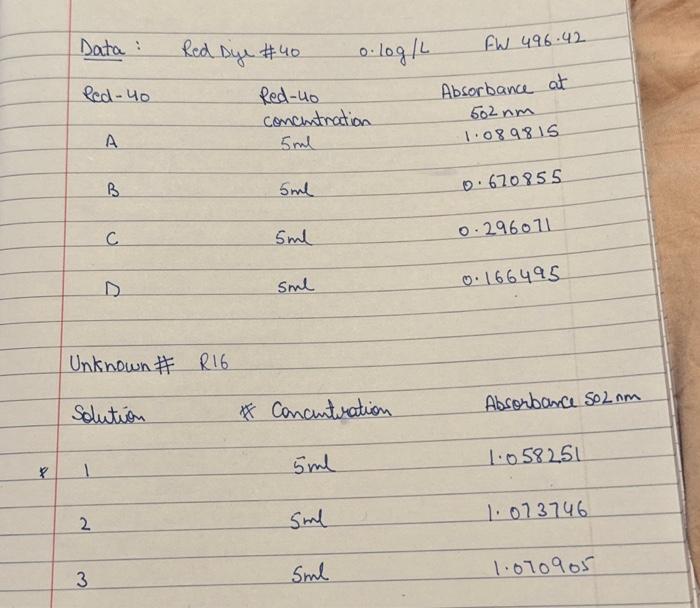 Data : Red Dye #40 0.10g/L FW 496.42
Red-40 Red-40 Absorbance at
concentration 502nm
A 5ml 1.089815
B 5ml 0.670855
C 5ml 0.296071
D 5ml 0.166495
Unknown # R16
Solution * Concentration Absorbance 502nm
* 1 5ml 1.058251
2 5ml 1.073746
3 5ml 1.070905